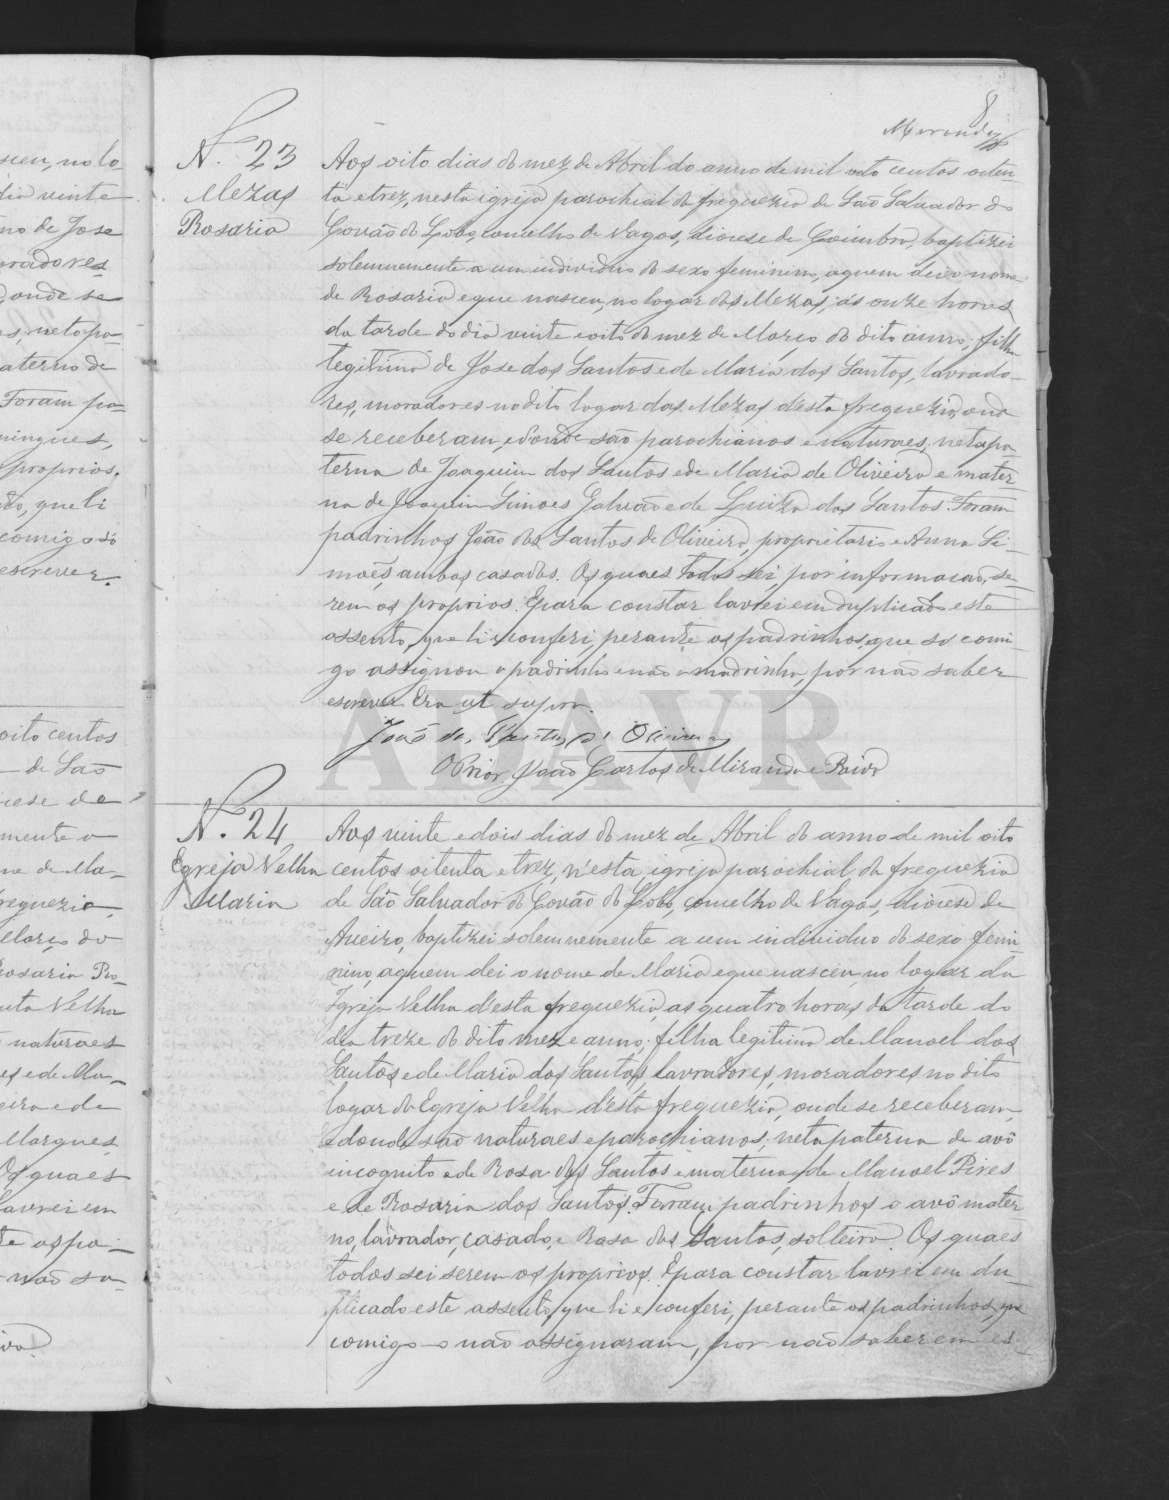 8
Miranda
N. 23
Mezas
Rosaria
Aos oito dias do mez de Abril do anno de mil oito centos oiten-
ta e trez, nesta igreja parochial da freguezia de São Salvador do
Covão do Lobo, concelho de Vagos, diocese de Coimbra, baptizei
solemnemente a um individuo do sexo feminino, a quem dei o nome
de Rosaria e que nasceu, no logar das Mezas, ás onze horas
da tarde do dia vinte e oito do mez de Março do dito anno, filha
legitima de Jose dos Santos e de Maria dos Santos, lavrado-
res, moradores no dito logar das Mezas d'esta freguezia, onde
se receberam, e donde são parochianos e naturaes, neta pa-
terna de Joaquim dos Santos e de Maria de Oliveira e mater-
na de Joaquim Simoes Galvão e de Luiza dos Santos. Foram
padrinhos João dos Santos de Oliveira, proprietario e Anna Si-
moes, ambos casados. Os quaes todos sei, por informação, se-
rem os proprios. E para constar lavrei em duplicado este
assento, que li e conferi, perante os padrinhos, que só comi-
go assignou o padrinho e não a madrinha, por não saber
escrever. Era ut supra.
João dos Santos de Oliveira
O Prior João Carlos de Miranda e Paiva
N. 24
Egreja Velha
Maria
Aos vinte e dois dias do mez de Abril do anno de mil oito
centos oitenta e trez, n'esta igreja parochial da freguezia
de São Salvador do Covão do Lobo, concelho de Vagos, diocese de
Aveiro, baptizei solemnemente a um individuo do sexo femi-
nino, a quem dei o nome de Maria e que nasceu, no logar da
Igreja Velha d'esta freguezia, as quatro horas da tarde do
dia treze do dito mez e anno, filha legitima de Manoel dos
Santos e de Maria dos Santos, lavradores, moradores no dito
logar da Egreja Velha d'esta freguezia, onde se receberam,
e donde são naturaes e parochianos, neta paterna de avô
incognito e de Rosa dos Santos e materna de Manoel Pires
e de Rosaria dos Santos. Foram padrinhos o avô mater-
no, lavrador, casado, e Rosa dos Santos, solteira. Os quaes
todos sei serem os proprios. E para constar lavrei em du-
plicado este assento, que li e conferi, perante os padrinhos, que
comigo o não assignaram, por não saberem es-
ADAVR